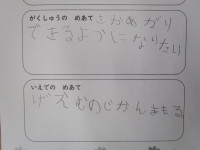 がくしゅうの めあて
さかあがり
できるようになりたい
いえでの めあて
げえむのじかんまもる